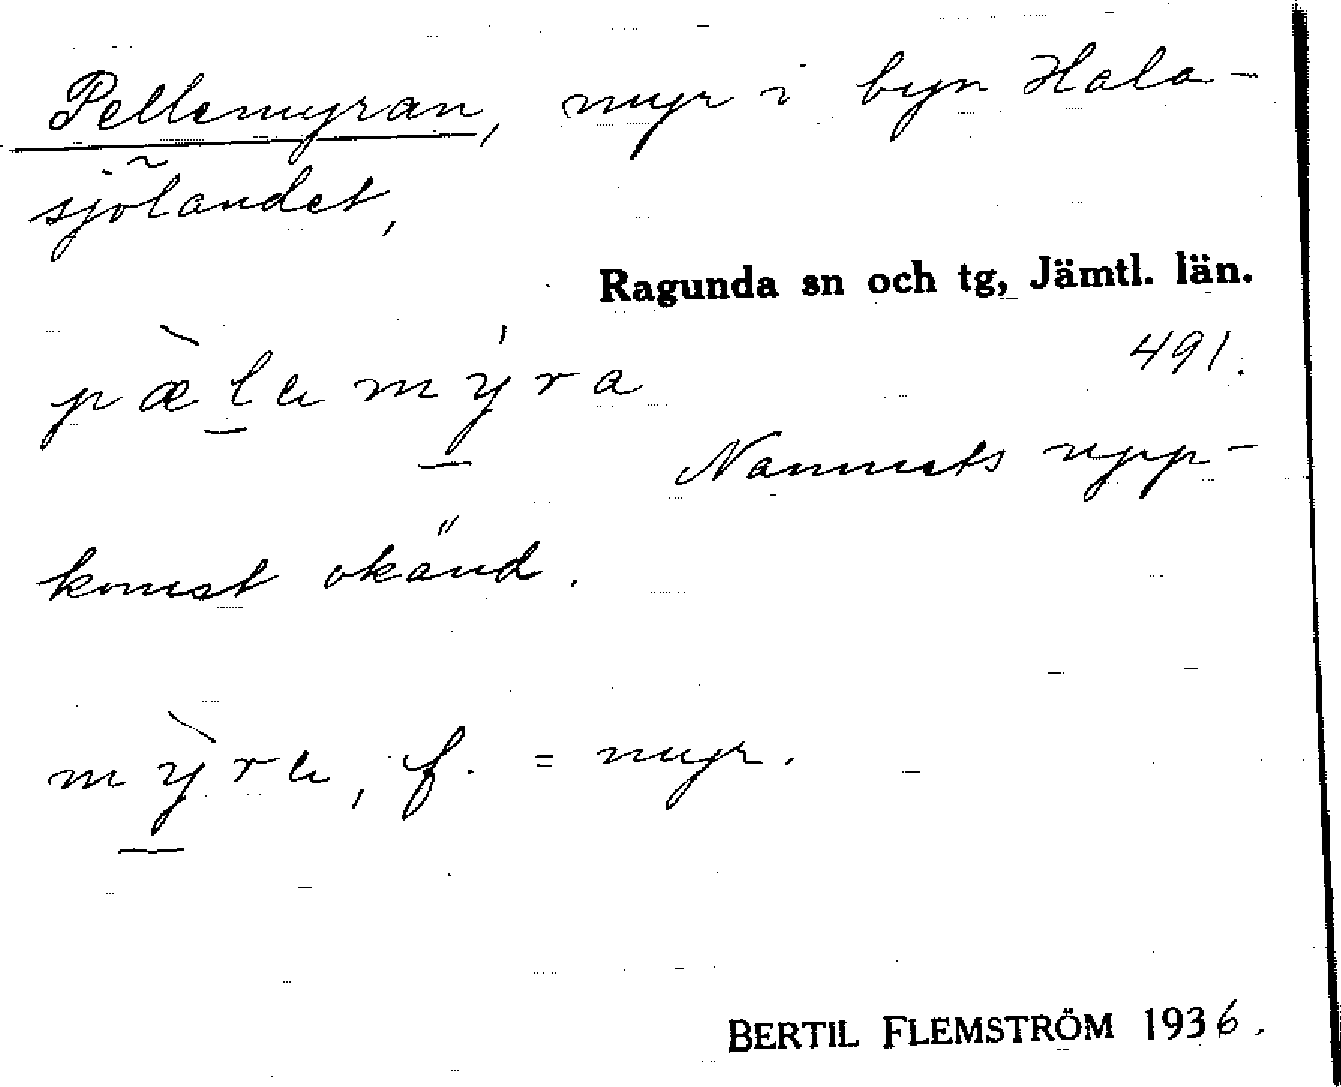 Pellemyran, myr i byn Hala-
sjölandet,
Ragunda sn och tg, Jämtl. län.
pæ̀l̠e mý̠ra
491.
Namnets upp-
komst okänd.
mỳ̠re, f. = myr.
BERTIL FLEMSTRÖM 1936.